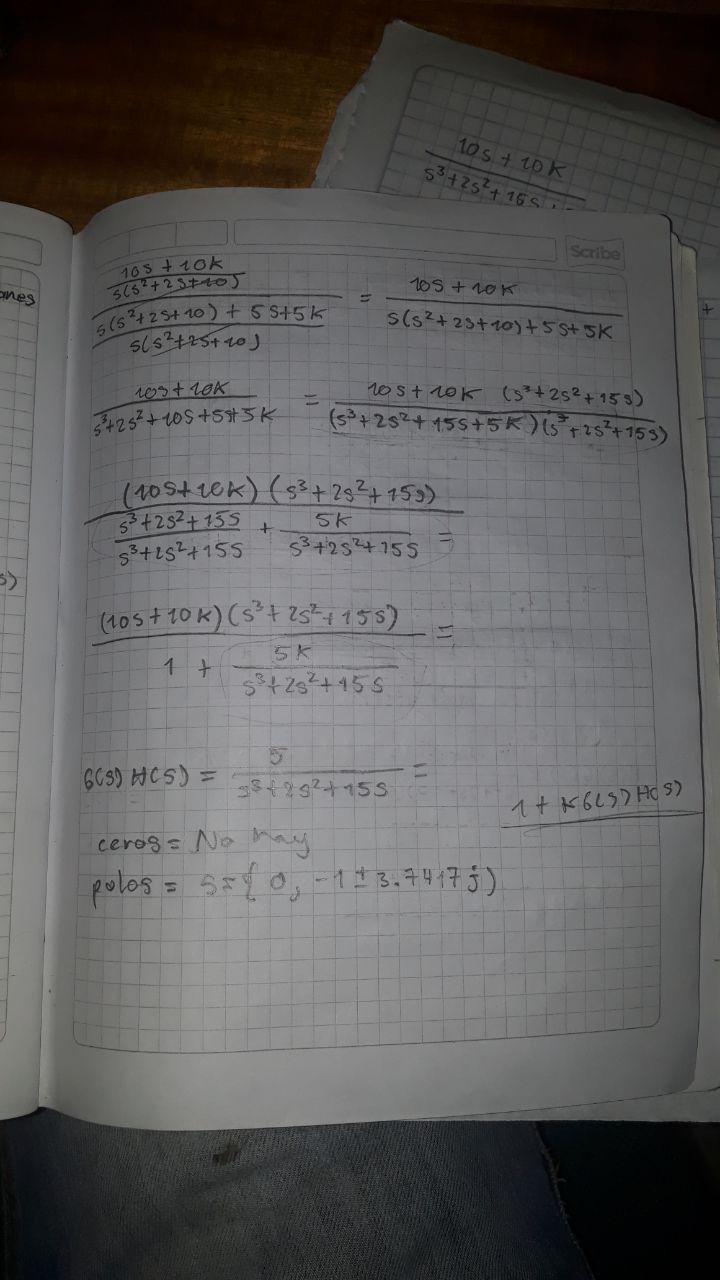 10s + 10K
s³+2s²+15s
Scribe
ones
10s+10K
s(s²+2s+10)
s(s²+2s+10) + 5s+5K
s(s²+2s+10)
= 10s+10K
s(s²+2s+10)+5s+5K
10s+10K
s³+2s²+10s+5s+5K
= 10s+10K (s³+2s²+15s)
(s³+2s²+15s+5K)(s³+2s²+15s)
(10s+10K)(s³+2s²+15s)
s³+2s²+15s + 5K =
s³+2s²+15s s³+2s²+15s
s)
(10s+10K)(s³+2s²+15s) =
1 + 5K
s³+2s²+15s
G(s)H(s) = 5 =
s³+2s²+15s
1+KG(s)H(s)
ceros = No hay
polos = s={0, -1±3.7417j)